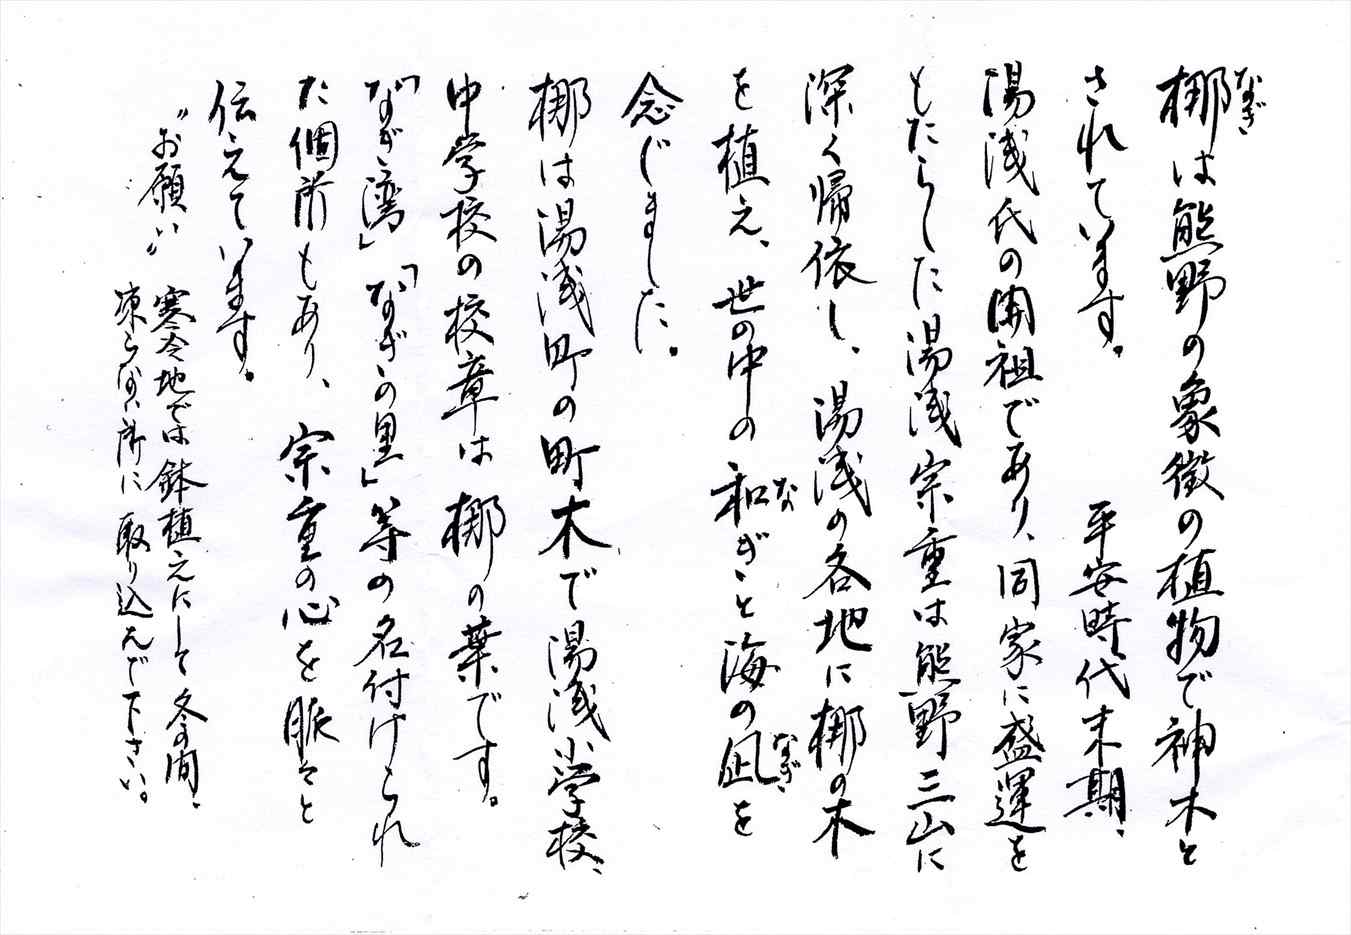 梛は熊野の象徴の植物で神木と
なぎ
されています。　平安時代末期、
湯浅氏の開祖であり、同家に盛運を
もたらした湯浅宗重は熊野三山に
深く帰依し、湯浅の各地に梛の木
を植え、世の中の和ぎと海の凪を
な　なぎ
念じました。
梛は湯浅町の町木で湯浅小学校、
中学校の校章は梛の葉です。
「なぎ湾」「なぎの里」等の名付けられ
た個所もあり、宗重の心を脈々と
伝えています。
〝お願い〟寒冷地では鉢植えにして冬の間、
凍らない所に取り込んで下さい。